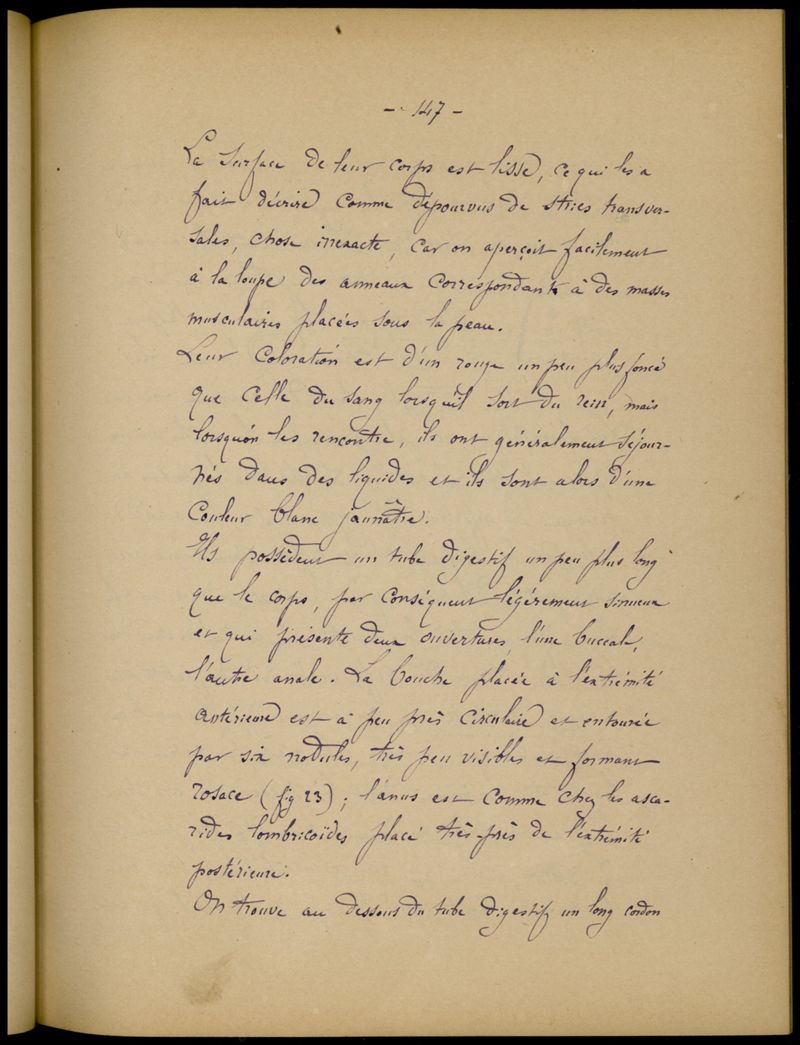 - 147 -
La surface de leur corps est lisse, ce qui les a
fait décrire comme dépourvus de stries transver-
sales, chose inexacte, car on aperçoit facilement
à la loupe des anneaux correspondants à des masses
musculaires placées sous la peau.
Leur coloration est d'un rouge un peu plus foncé
que celle du sang lorsqu'il sort du rein, mais
lorsqu'on les rencontre, ils ont généralement séjour-
nés dans des liquides et ils sont alors d'une
couleur blanc jaunâtre.
Ils possèdent un tube digestif un peu plus long
que le corps, par conséquent légèrement sinueux
et qui présente deux ouvertures, l'une buccale,
l'autre anale. La bouche placée à l'extrémité
antérieure est à peu près circulaire et entourée
par six nodules, très peu visibles et formant
rosace (fig 23) ; l'anus est comme chez les asca-
rides lombricoïdes placé très-près de l'extrémité
postérieure.
On trouve au dessous du tube digestif un long cordon